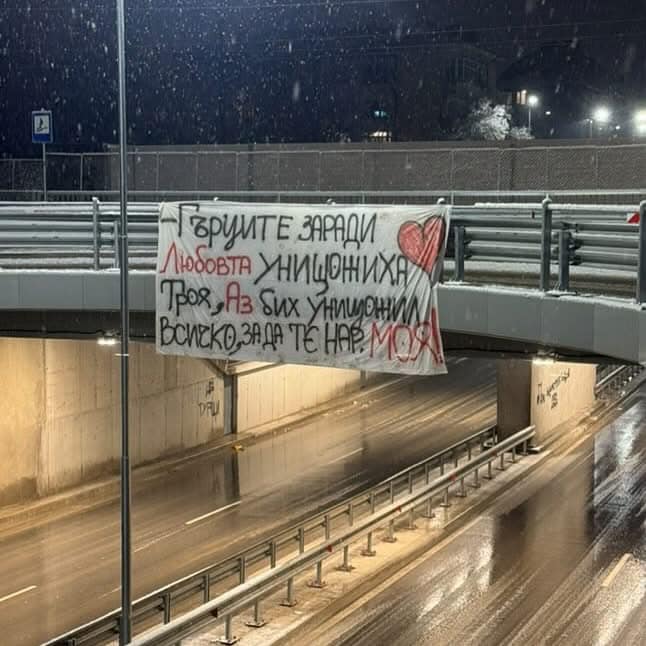 -Гърците заради
Любовта унищожиха
Троя, Аз бих унищожил
всичко, за да те нар. МОЯ!